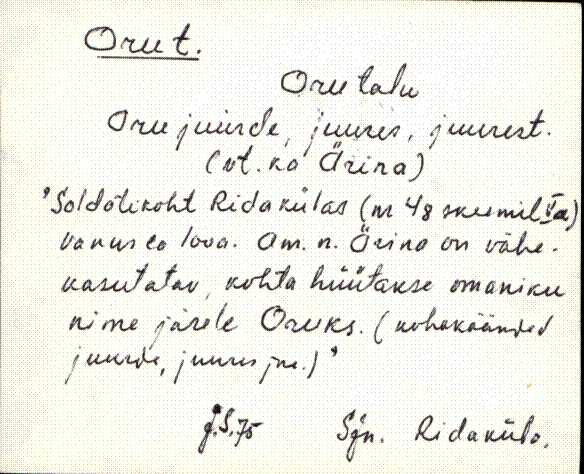 Oru t.
Oru talu
Oru juurde, juures, juurest.
(vt. ka Ärina)
"Soldatikoht Ridakülas (nr 48 skeemil Va)
vanus ca 100a. Am. n. Ärina on vähe-
kasutatav, kohta hüütakse omaniku
nime järele Oruks. (kohakäänded
juurde, juures jne.)"
J.S. 75 Sjn. Ridaküla.